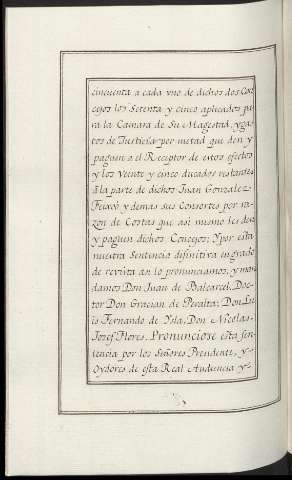 cincuenta a cada vno de dichos dos Con
cejos los Setenta y cinco aplicados pa
ra la Camara de Su Magestad, ygas
tos de Justicia por metad que den y
paguen a el Receptor de estos efectos
y los Veinte y cinco ducados restantes
â la parte de dichos Juan Gonzalez
Feixo y demas sus Consortes por ra
zon de Costas que asi mismo les den
y paguen dichos Concejos; Ypor esta
nuestra Sentencia difinitiva engrado
de revista asi lo pronunciamos, y man
damos Don Juan de Balcarcel, Doc
tor Don Gracian de Peralta; Don Lu
is Fernando de Ysla, Don Nicolas
Josef Flores. Pronunciose esta sen
tencia por los Señores Presidente, y
Oydores de esta Real Audiencia y